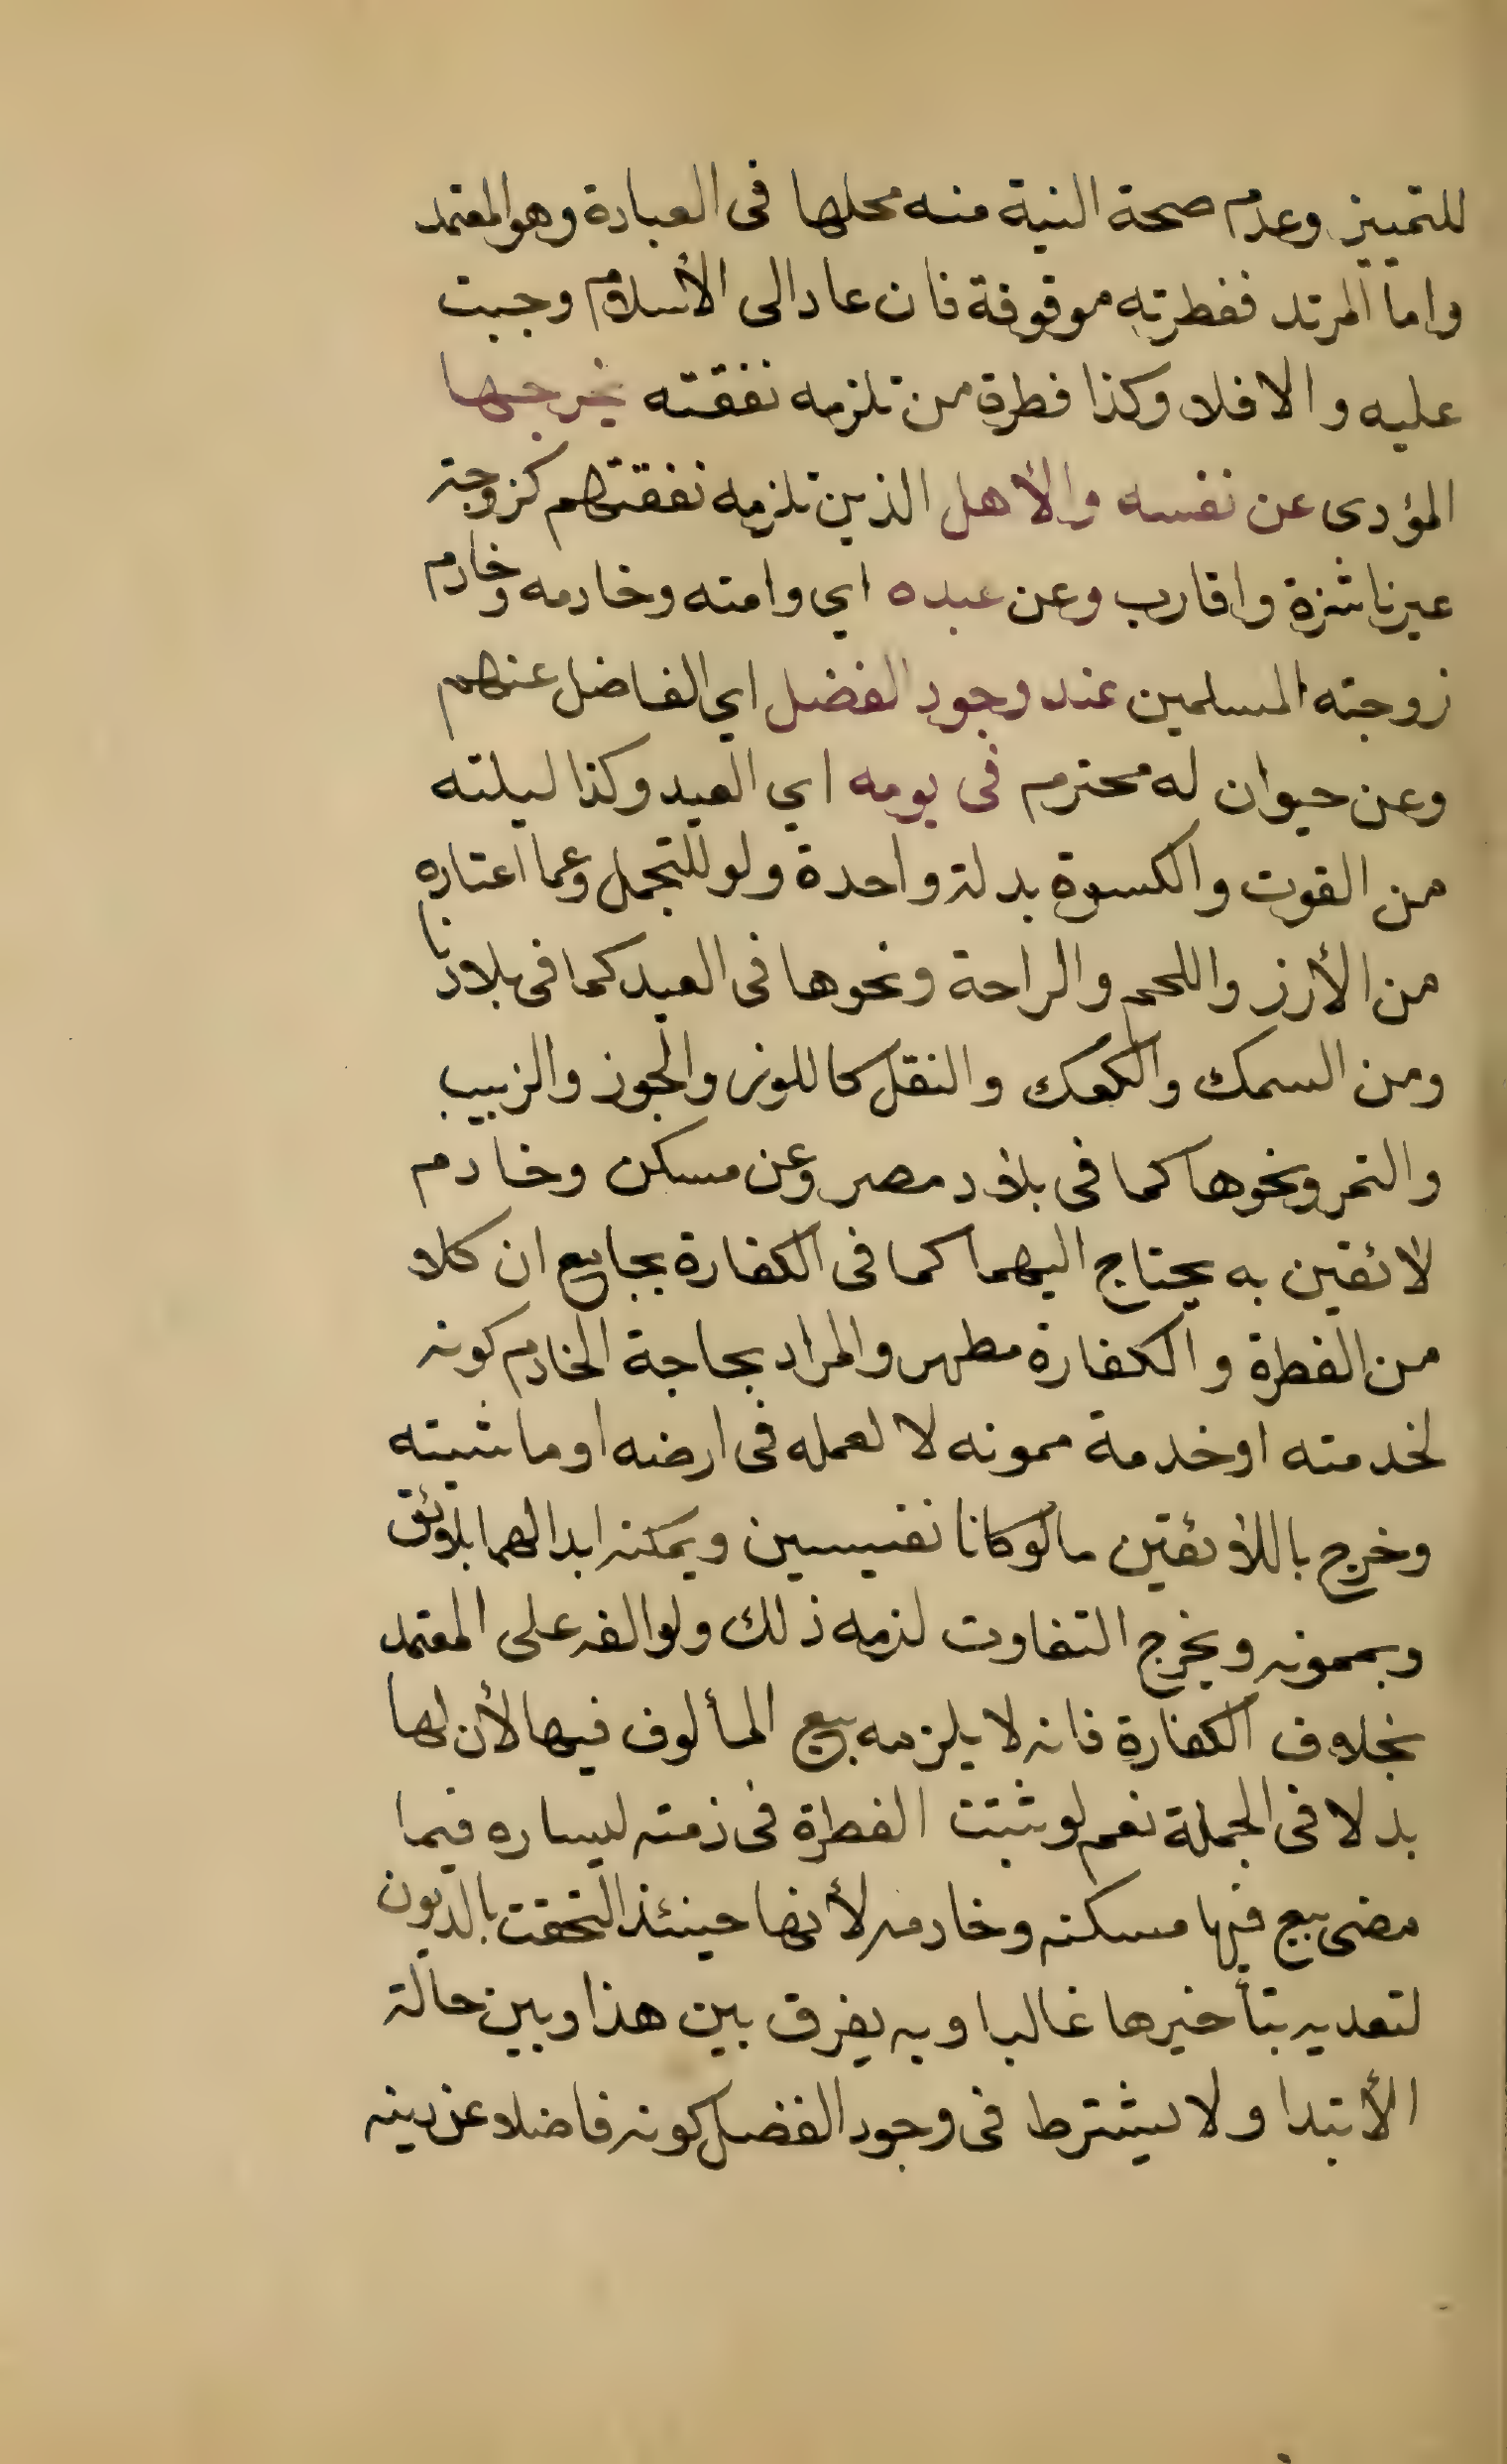 للتمييز وعدم صحة النية منه محلها فى العبادة وهو المعتمد
واما المرتد ففطرته موقوفة فان عاد الى الأسلام وجبت
عليه والا فلا وكذا فطرة من تلزمه نفقته يخرجها
المؤدى عن نفسه والأهل الذين تلزمه نفقتهم كزوجة
غير ناشزة واقارب وعن عبده اي وامته وخادمه وخادم
زوجته المسلمين عند وجود الفضل اي الفاضل عنهم
وعن حيوان له محترم فى يومه اي العيد وكذا ليلته
من القوت والكسوة بدلة واحدة ولو للتجمل وعما اعتاده
من الأرز واللحم والراحة ونحوها فى العيد كما فى بلادنا
ومن السمك والكعك والنقل كاللوز والجوز والزبيب
والتمر ونحوها كما فى بلاد مصر وعن مسكن وخادم
لائقين به يحتاج اليهما كما فى الكفارة بجامع ان كلا
من الفطرة والكفارة مطهر والمراد بحاجة الخادم كونه
لخدمته او خدمة ممونه لا لعمله فى ارضه او ماشيته
وخرج باللائقين ما لو كانا نفيسين ويمكنه ابدالهما بلائق
وبممونه ويخرج التفاوت لزمه ذلك ولو الفه على المعتمد
بخلاف الكفارة فانه لا يلزمه بيع المألوف فيها لأن لها
بدلا فى الجملة نعم لو ثبتت الفطرة فى ذمته ليساره فيما
مضى بيع فيها مسكنه وخادمه لأنها حينئذ التحقت بالديون
لتعديه بتأخيرها غالبا وبه يفرق بين هذا وبين حالة
الأبتدا ولا يشترط فى وجود الفضل كونه فاضلا عن دينه